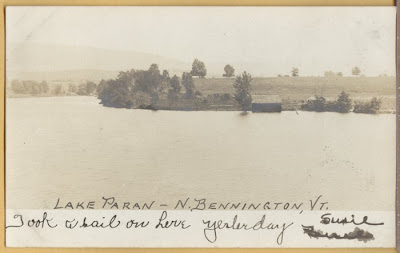 LAKE PARAN - N. BENNINGTON, VT.
Took a sail on here yesterday Susie